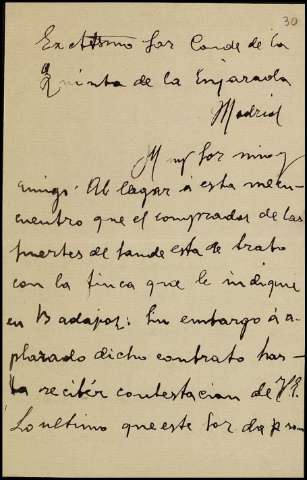 30
Excmo Sor Conde de la
Quinta de la Enjarada
Madrid
Muy Sor mio y
amigo: Al llegar á esta me en-
cuentro que el comprador de las
suertes de tande esta de trato
con la finca que le indique
en Badajoz: Sin embargo á a-
plazado dicho contrato has-
ta recibér contestacion de V.E.
Lo ultimo que este Sor da p